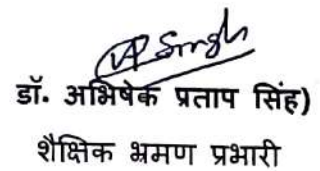 AP Singh
डॉ. अभिषेक प्रताप सिंह)
शैक्षिक भ्रमण प्रभारी